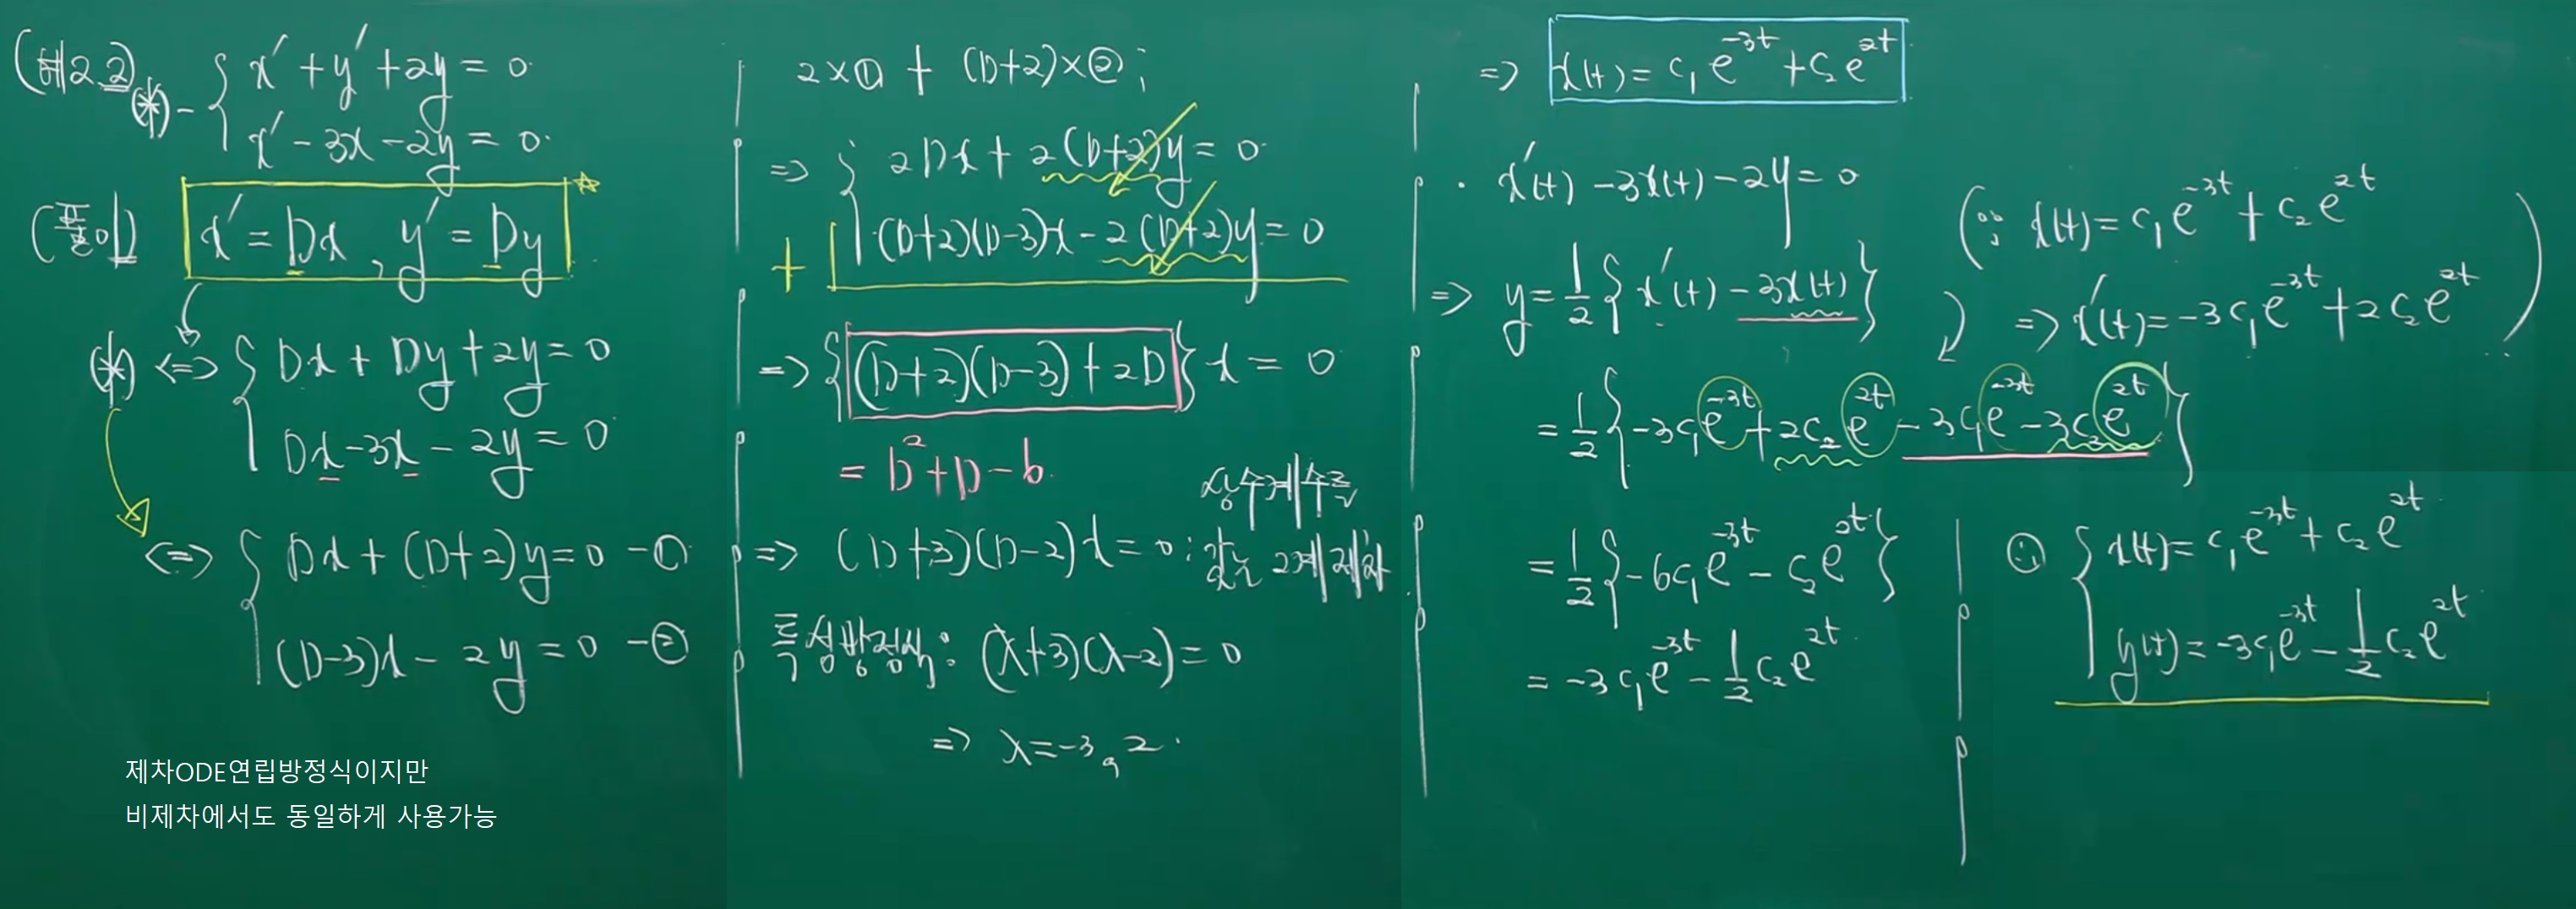 (예2.2)
(*) - { x' + y' + 2y = 0
x' - 3x - 2y = 0
(풀이) x' = Dx , y' = Dy ☆
(*) <=> { Dx + Dy + 2y = 0
Dx - 3x - 2y = 0
<=> { Dx + (D+2)y = 0 - ①
(D-3)x - 2y = 0 - ②
제차ODE연립방정식이지만
비제차에서도 동일하게 사용가능
2×① + (D+2)×② ;
=> { 2Dx + 2(D+2)y = 0
+ (D+2)(D-3)x - 2(D+2)y = 0
=> {(D+2)(D-3) + 2D} x = 0
= D² + D - 6
=> (D+3)(D-2)x = 0 : 상수계수를
갖는 2계제차
특성방정식 : (λ+3)(λ-2) = 0
=> λ = -3, 2
=> x(t) = c₁e^{-3t} + c₂e^{2t}
· x'(t) - 3x(t) - 2y = 0
=> y = 1/2 { x'(t) - 3x(t) }
(∵ x(t) = c₁e^{-3t} + c₂e^{2t}
=> x'(t) = -3c₁e^{-3t} + 2c₂e^{2t} )
= 1/2 { -3c₁e^{-3t} + 2c₂e^{2t} - 3c₁e^{-3t} - 3c₂e^{2t} }
= 1/2 { -6c₁e^{-3t} - c₂e^{2t} }
= -3c₁e^{-3t} - 1/2 c₂e^{2t}
∴ { x(t) = c₁e^{-3t} + c₂e^{2t}
y(t) = -3c₁e^{-3t} - 1/2 c₂e^{2t}